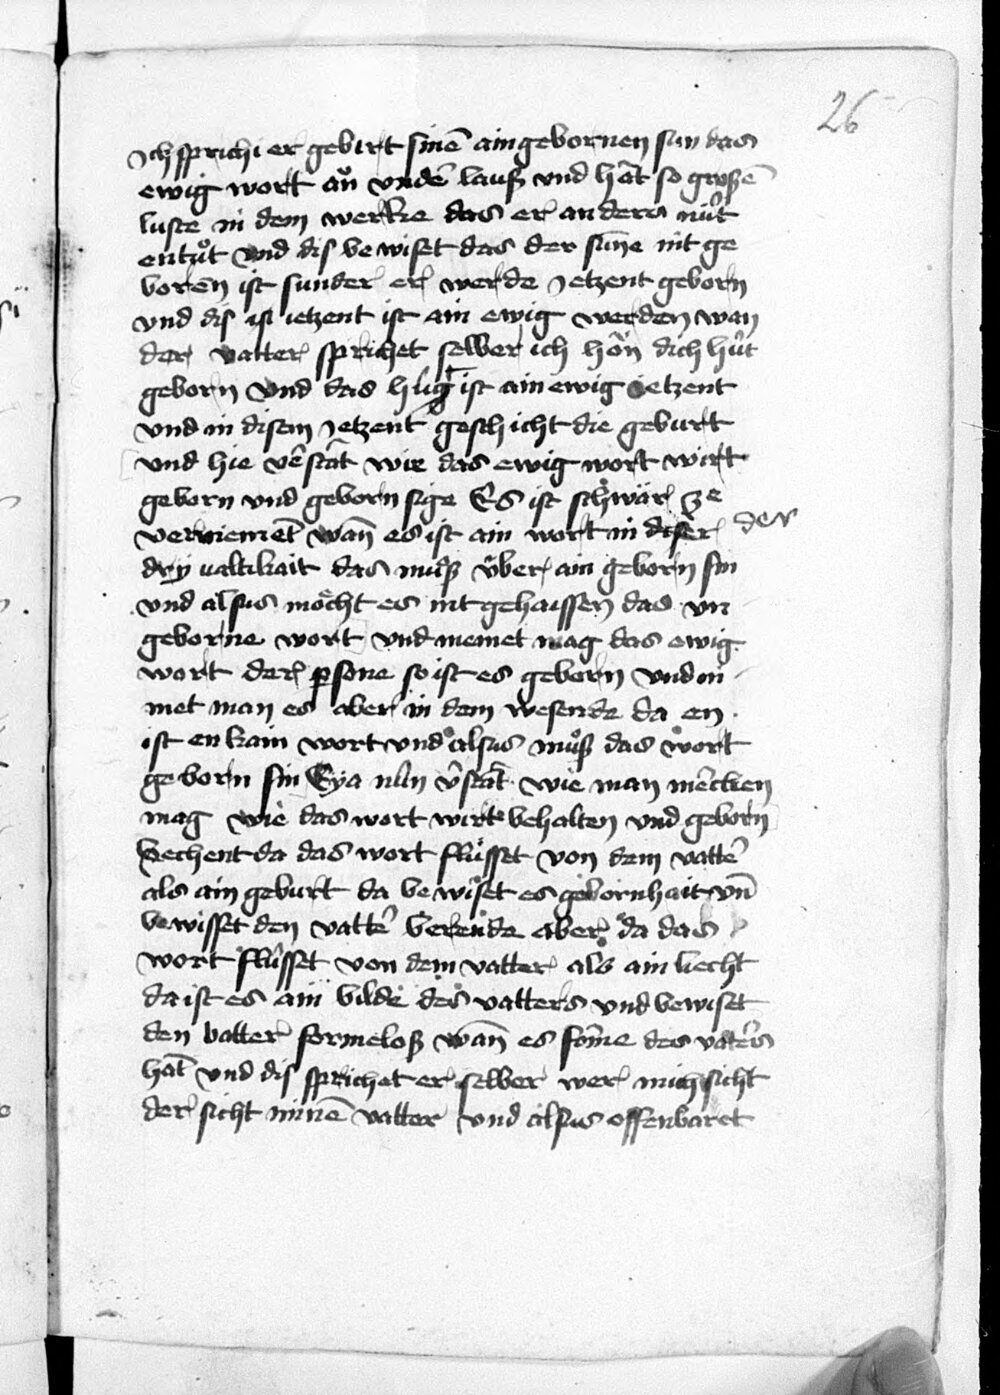 26
Ich sprichi er gebirt sinē aingebornen sun das
ewig wort aͧn vnderˉ lausz vnd hāt so groszē
luste in dem werke das er anders nuͤt
entuͦt vnd dis bewiset das der sune nit ge
boren ist sunder er werde ietzent geborn
vnd dis ist ietzent ist ain ewig werden wan
der vatter sprichet selber ich hoͧn dich huͤt
geborn vnd das huͤg ist ain ewig ietzent
vnd in disem ietzent geschicht die geburt
vnd hie vēstāt wie das ewig wort wirt
geborn vnd geborn sige Es ist schwaͤr ze
verniemēt wan̄ es ist ain wort in diser der
dry ualtikait das muͦsz uͤber ain geborn sin
vnd alsus moͤcht es nit gehaissen das vn
geborne wort vnd niemet mag das ewig
wort der psone so ist es geborn vnd ni
met man es aber in dem wesende da en
ist enkain wort vnd alsus muͦsz das wort
geborn sin Eya nuͤn v̄stāt wie man mēcken
mag wie das wort wirt behalten vnd geborn
Sechent da das wort fluͤsset von dem vattē
als ain geburt da bewiset es gebornhait vn̄
bewisset den vattē berende aber da das
wort fluͤsset von dem vatter als ain liecht
da ist es ain bilde des vatters vnd bewiset
den batter formelosz wan̄ es fōme des vatēs
hāt vnd dis sprichet er selber wer mich sicht
der sicht minē vatter vnd alsus offenbaret